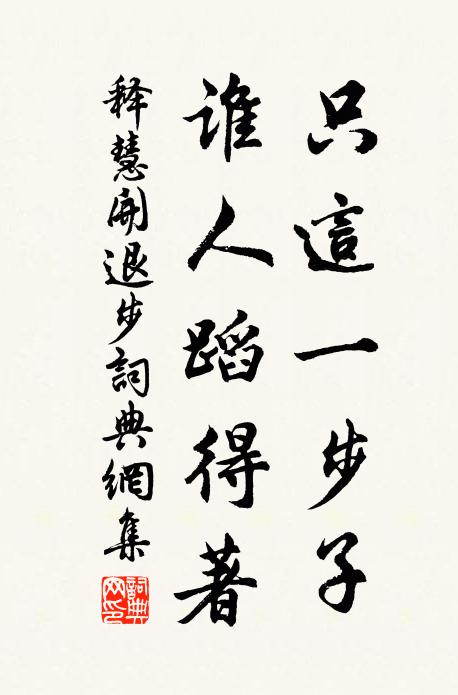 只這一步子
谁人蹈得著
释慧開退步詞典網集
詞典網印